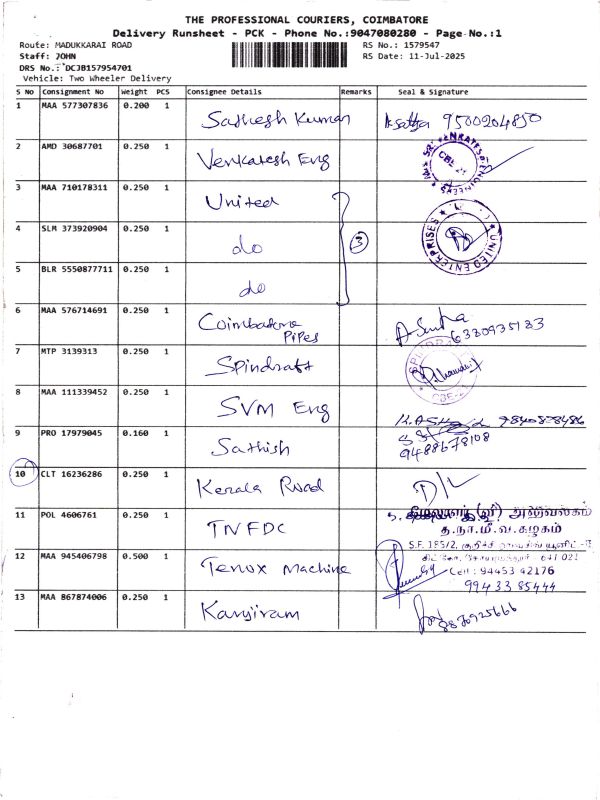 THE PROFESSIONAL COURIERS, COIMBATORE
Delivery Runsheet - PCK - Phone No.:9047080280 - Page No.:1
Route: MADUKKARAI ROAD RS No.: 1579547
Staff: JOHN RS Date: 11-Jul-2025
DRS No.: DCJB157954701
Vehicle: Two Wheeler Delivery
S No Consignment No Weight PCS Consignee Details Remarks Seal & Signature
1 MAA 577307836 0.200 1 Sathesh Kumar 9500204850
2 AMD 30687701 0.250 1 Venkatesh Eng
3 MAA 710178311 0.250 1 United
UNITED ENTERPRISES
4 SLM 373920904 0.250 1 do 3
5 BLR 5550877711 0.250 1 do
6 MAA 576714691 0.250 1 Coimbatore Pipes
7 MTP 3139313 0.250 1 Spindraft
8 MAA 111339452 0.250 1 SVM Eng
9 PRO 17979045 0.160 1 Sathish 9488678108
10 CLT 16236286 0.250 1 Kerala Road D/L
11 POL 4606761 0.250 1 TNFDC
த.நா.மீ.வ.கழகம்
12 MAA 945406798 0.500 1 Tenox Machine
Cell: 94453 42176
99433 85444
13 MAA 867874006 0.250 1 Kanjiram